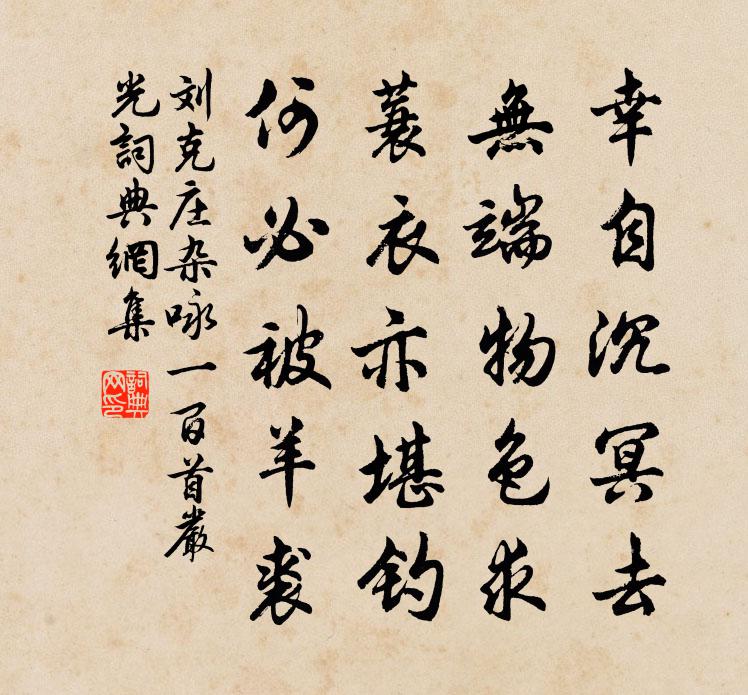 幸自沉冥去
無端物色求
蓑衣亦堪釣
何必被羊裘
刘克庄杂咏一百首嚴
光詞典網集
詞典
网印